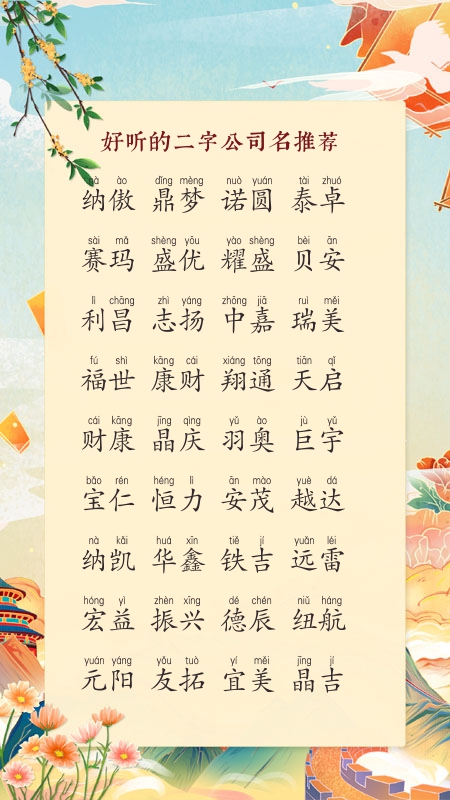 好听的二字公司名推荐
nà ào dǐng mèng nuò yuán tài zhuó
纳傲 鼎梦 诺圆 泰卓
sài mǎ shèng yōu yào shèng bèi ān
赛玛 盛优 耀盛 贝安
lì chāng zhì yáng zhōng jiā ruì měi
利昌 志扬 中嘉 瑞美
fú shì kāng cái xiáng tōng tiān qǐ
福世 康财 翔通 天启
cái kāng jīng qìng yǔ ào jù yǔ
财康 晶庆 羽奥 巨宇
bǎo rén héng lì ān mào yuè dá
宝仁 恒力 安茂 越达
nà kǎi huá xīn tiě jí yuǎn léi
纳凯 华鑫 铁吉 远雷
hóng yì zhèn xīng dé chén niǔ háng
宏益 振兴 德辰 纽航
yuán yáng yǒu tuò yí měi jīng jí
元阳 友拓 宜美 晶吉